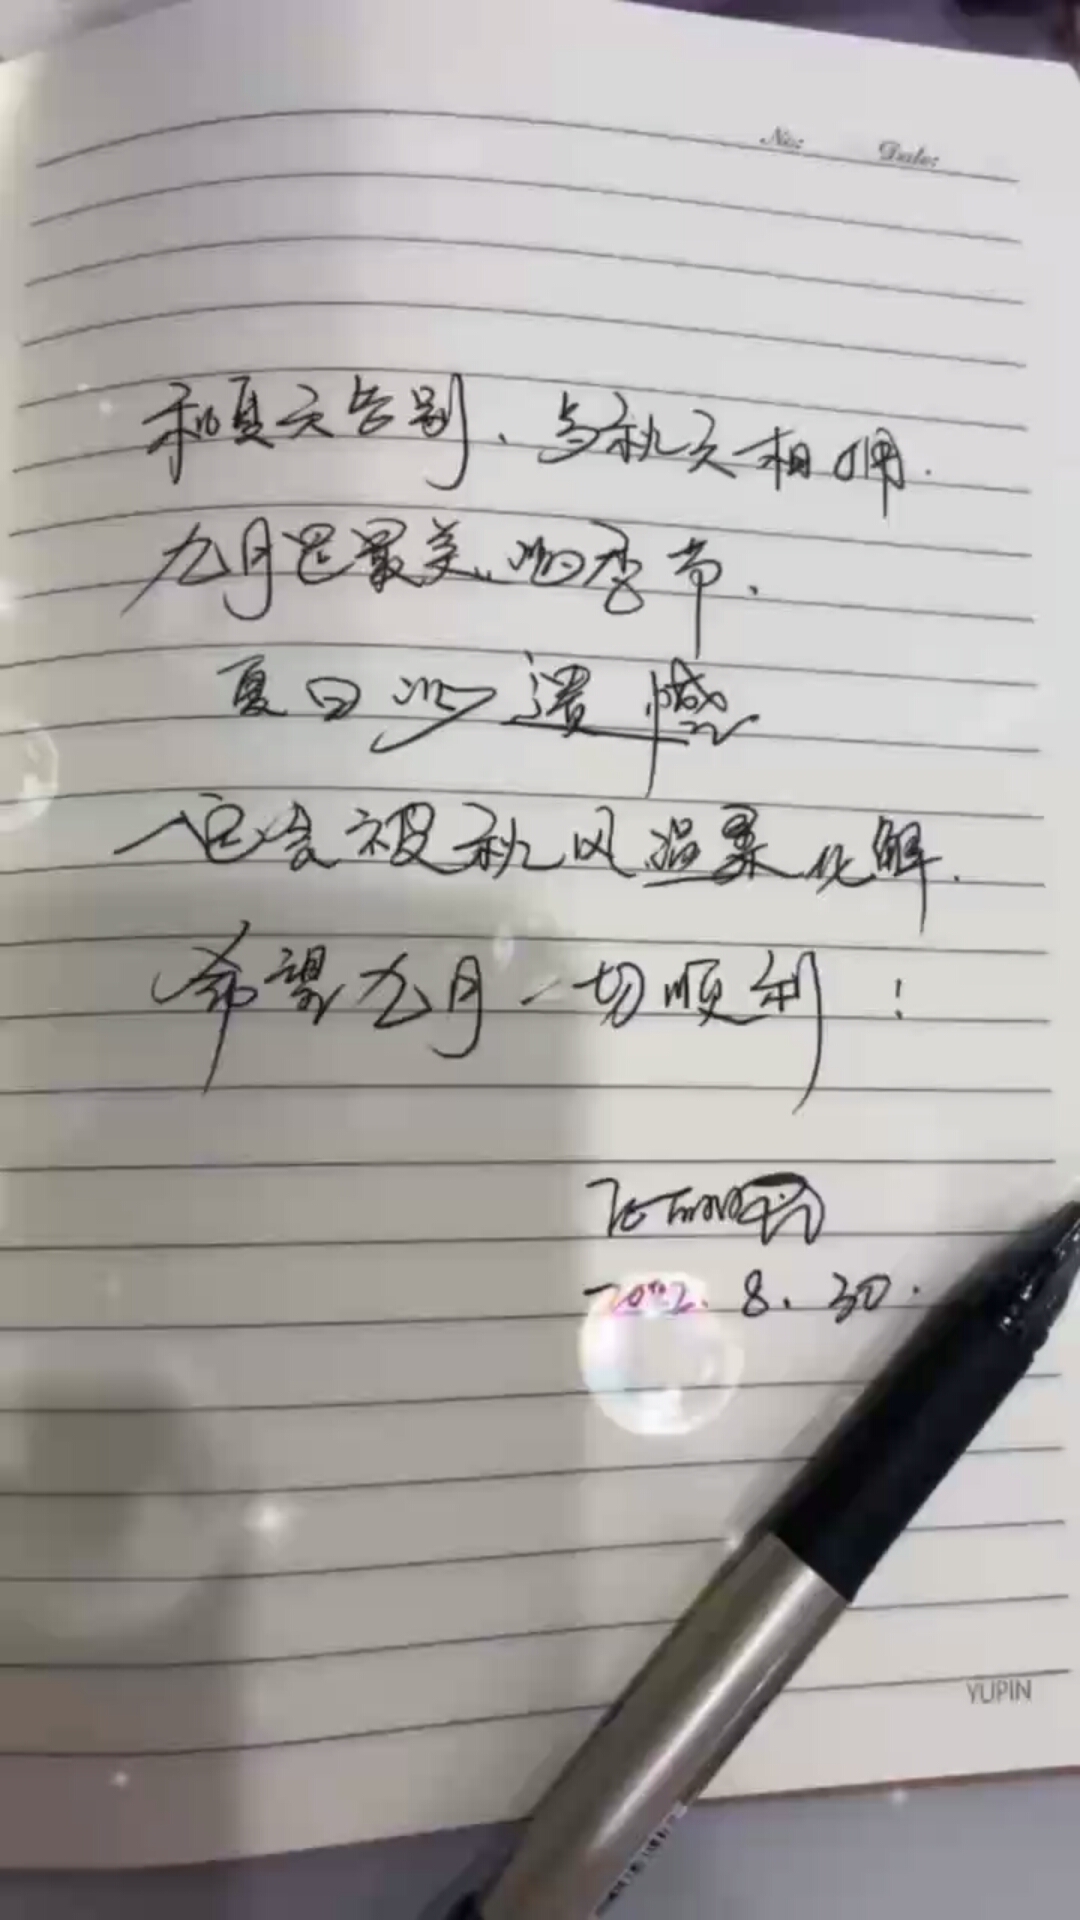 No: Date:
和夏天告别、与秋天相拥.
九月是最美的季节.
夏日的遗憾
一定会被秋风温柔化解.
希望九月一切顺利！
2022.8.30.
YUPIN